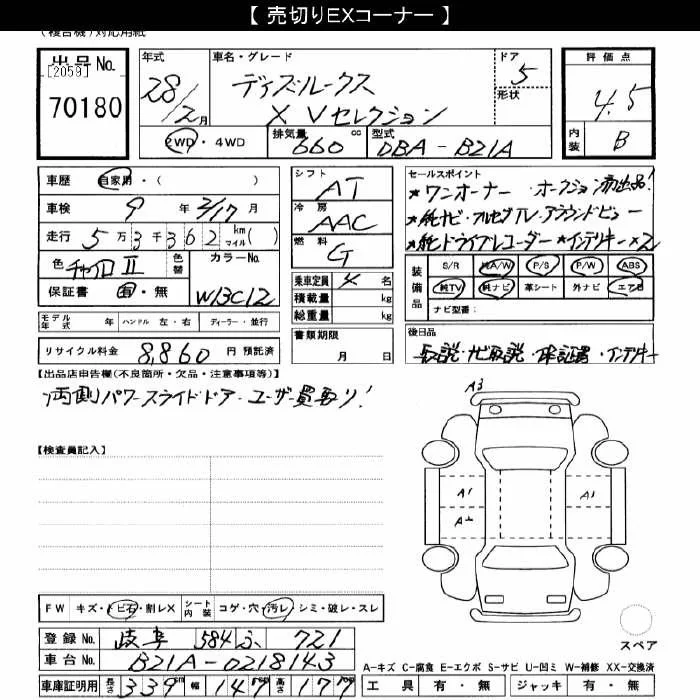 【 売切りEXコーナー 】
(複合機)対応用紙
出品No.
[2059]
70180
年式
28/2月
車名・グレード
ディズルークス
X Vセレクション
ドア
5
形状
評価点
4.5
内装
B
2WD・4WD
排気量 660 cc
型式 DBA-B21A
車歴 自家用・( )
車検 9年 2/17月
走行 5万3千362 km マイル( )
色 チャイロⅡ 色替
カラーNo. W13C12
保証書 有・無
シフト AT
冷房 AAC
燃料 G
乗車定員 4 名
積載量 kg
総重量 kg
書類期限
月 日
モデル年式 年 ハンドル 左・右 ディーラー・並行
リサイクル料金 8,860 円 預託済
セールスポイント
★ワンオーナー・オークション初出品!
★純ナビ・フルセグTV・アラウンドビュー
★純ドライブレコーダー ★インテリキー×2
装備品
S/R 純A/W P/S P/W ABS
純TV 純ナビ 革シート 外ナビ エアB
ナビ型番:
後日品
取説・ナビ取説・保証書・インテリキー
【出品店申告欄(不良箇所・欠品・注意事項等)】
両側パワースライドドア・ユーザー買取り!
【検査員記入】
A3
A1 A1
FW キズ・トビ石・割レX シート内装 コゲ・穴・汚レ・シミ・破レ・スレ
登録No. 岐阜 584 ふ 721
車台No. B21A-0218143
車庫証明用 長さ 339 cm 幅 147 cm 高さ 177 cm
スペア
A-キズ C-腐食 E-エクボ S-サビ U-凹ミ W-補修 XX-交換済
工具 有・無 ジャッキ 有・無